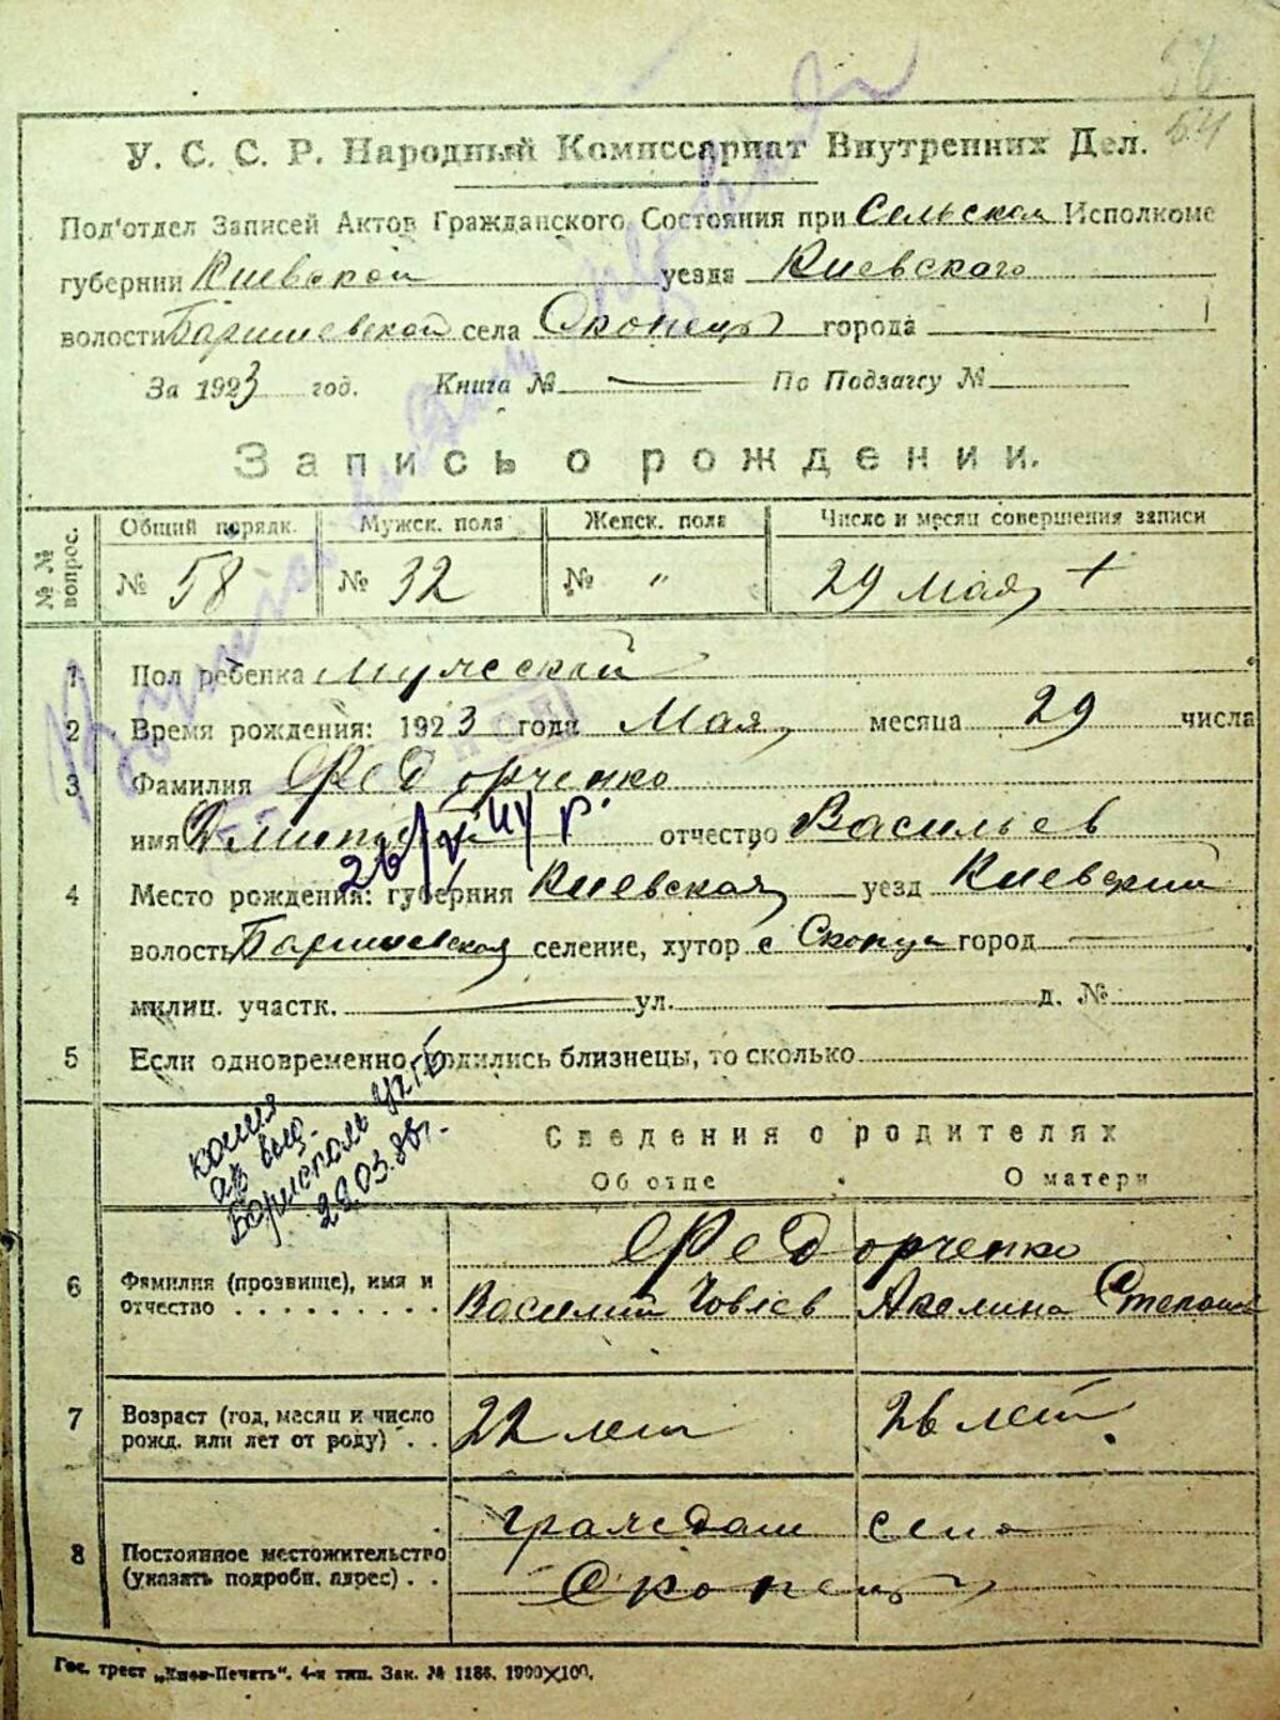 54
У. С. С. Р. Народный Комиссариат Внутренних Дел.
Под'отдел Записей Актов Гражданского Состояния при Сельском Исполкоме
губернии Киевской уезда Киевского
волости Баришевской села Скопцы города
За 1923 год. Книга № По Подзагсу №
Запись о рождении.
№ № вопрос. Общий порядк. Мужск. пола Женск. пола Число и месяц совершения записи
№ 58 № 32 № " 29 Мая +
1 Пол ребенка мужеской
2 Время рождения: 1923 года Мая месяца 29 числа
3 Фамилия Федорченко
имя Дмитрий отчество Васильев
26/V 44 г.
4 Место рождения: губерния Киевская уезд Киевский
волость Баришевская селение, хутор с Скопци город
милиц. участк. ул. д. №
5 Если одновременно родились близнецы, то сколько
копия
выд.
Борисполь
22.03.80г.
Сведения о родителях
Об отце О матери
Федорченко
6 Фамилия (прозвище), имя и отчество . . . . . . . . . Василий Иовлев Акелина
7 Возраст (год, месяц и число рожд. или лет от роду) . . 22 лет 26 лет
8 Постоянное местожительство (указать подробн. адрес) . . граждан села
Скопцы
Гос. трест „Киев-Печать“. 4-я тип. Зак. № 1186. 1000×100.